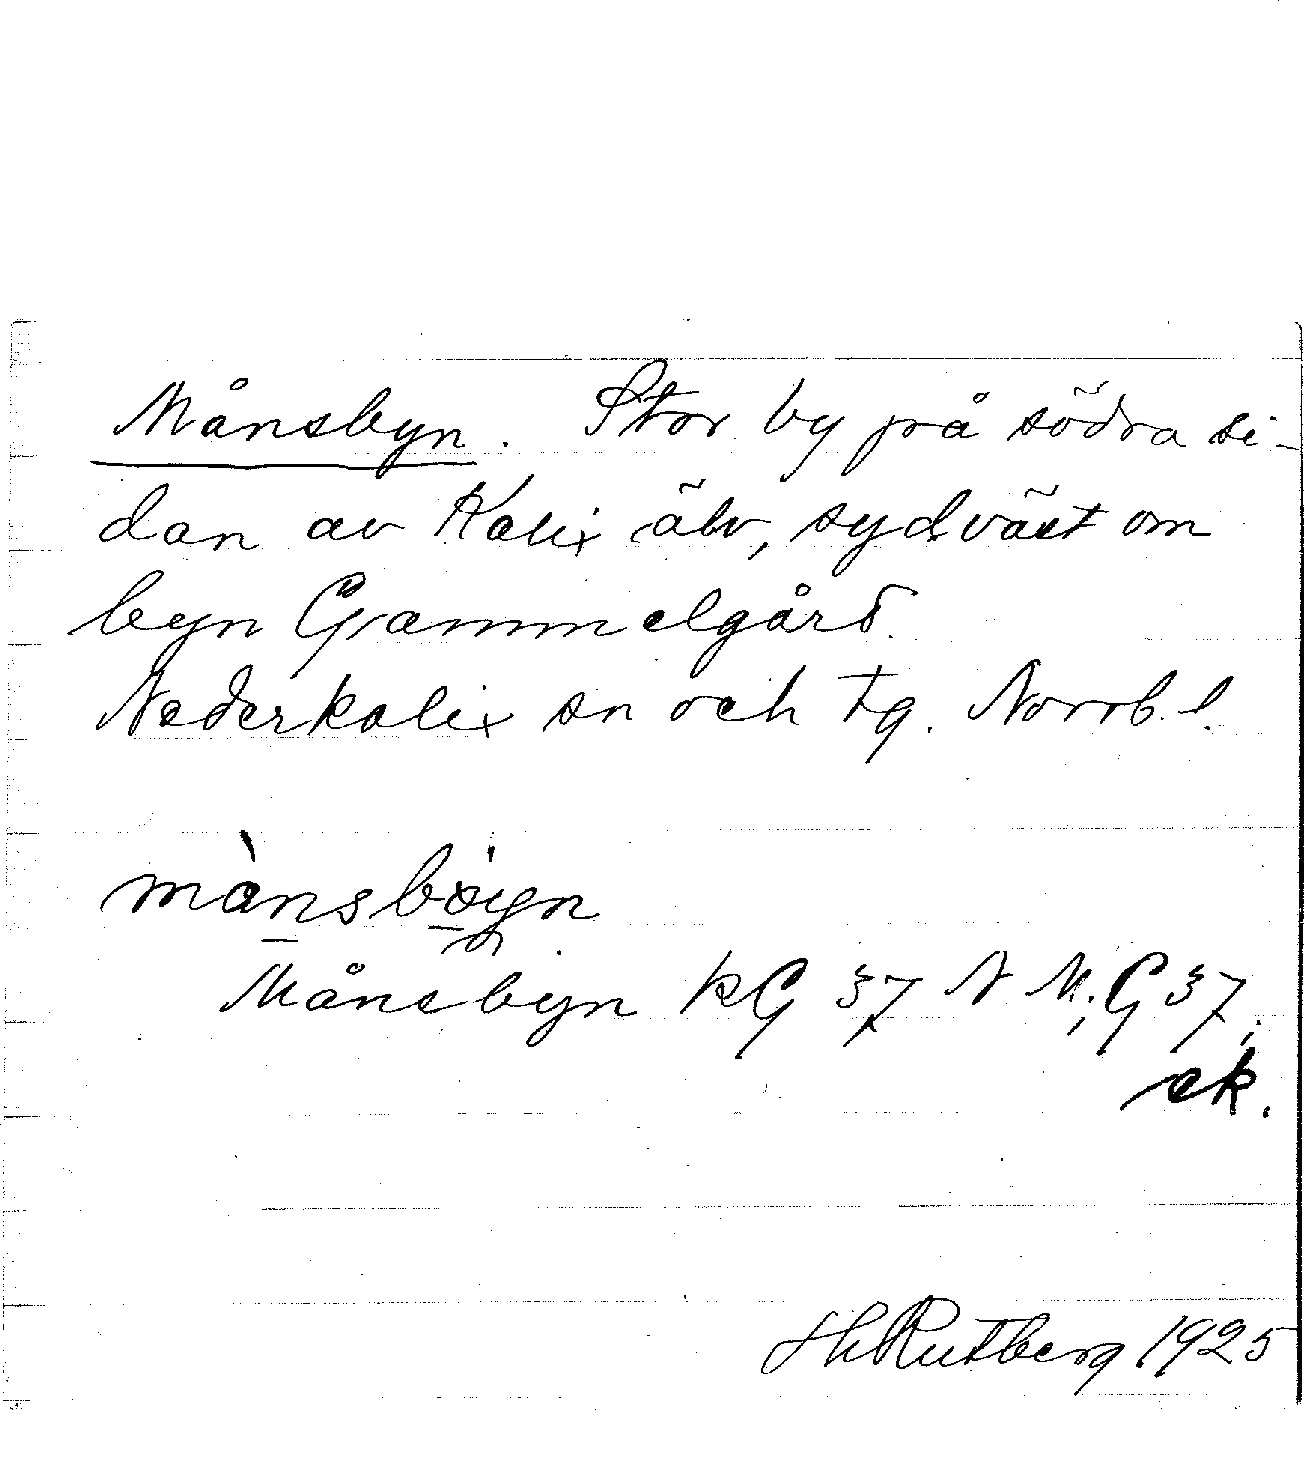 Månsbyn. Stor by på södra si-
dan av Kalix älv, sydväst om
byn Gammelgård.
Nederkalix sn och tg. Norrb. l.
Månsbyn KG 37 N M; G 37;
ek.
HRutberg 1925